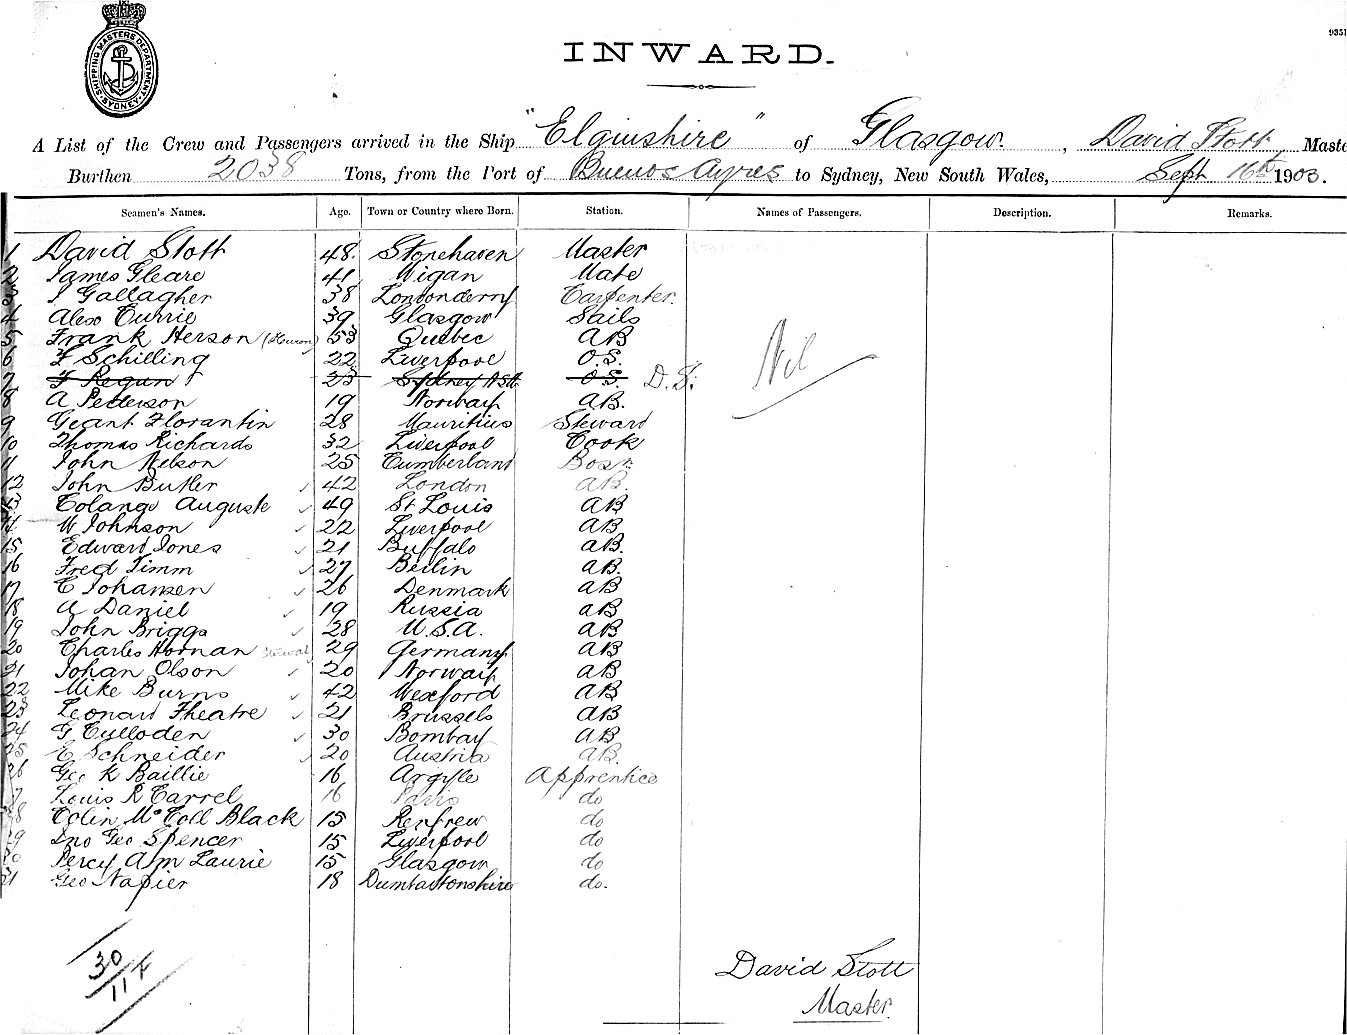 SHIPPING MASTERS DEPARTMENT SYDNEY
9351
INWARD.
A List of the Crew and Passengers arrived in the Ship "Elginshire" of Glasgow. , David Stott Maste
Burthen 2038 Tons, from the Port of Buenos Ayres to Sydney, New South Wales, Sept 16th 1903.
Seamen's Names. Age. Town or Country where Born. Station. Names of Passengers. Description. Remarks.
1 David Stott 48. Stonehaven Master
2 James Gleare 41 Wigan Mate
3 J Gallagher 38 Londonderry Carpenter.
4 Alex Currie 39 Glasgow Sails
5 Frank Herson (Huron) 53 Quebec AB
6 F Schilling 22 Liverpool O.S.
7 F Regan 23 Sydney NSW O.S. D.S.
8 A Pederson 19 Norway AB.
9 Geant Florantin 28 Mauritius Steward
10 Thomas Richards 32 Liverpool Cook
11 John Nelson 25 Cumberland Bosn
12 John Butler 42 London AB.
13 Colange Auguste 49 St Louis AB
14 W Johnson 22 Liverpool AB
15 Edward Jones 21 Buffalo AB.
16 Fred Timm 27 Berlin AB.
17 C Johansen 26 Denmark AB
18 A Daniel 19 Russia AB
19 John Briggs 28 U.S.A. AB
20 Charles Hornan 29 Germany AB
21 Johan Olson 20 Norway AB
22 Mike Burns 42 Wexford AB
23 Leonard Theatre 21 Brussels AB
24 G Culloden 30 Bombay AB
25 E Schneider 20 Austria AB.
26 Geo K Baillie 16 Argyle Apprentice
7 Louis R Carrel 16 Paris do
8 Colin McColl Black 15 Renfrew do
9 Jno Geo Spencer 15 Liverpool do
30 Percy A M Laurie 15 Glasgow do
31 Geo Napier 18 Dumbartonshire do.
Nil
30
117
David Stott
Master.